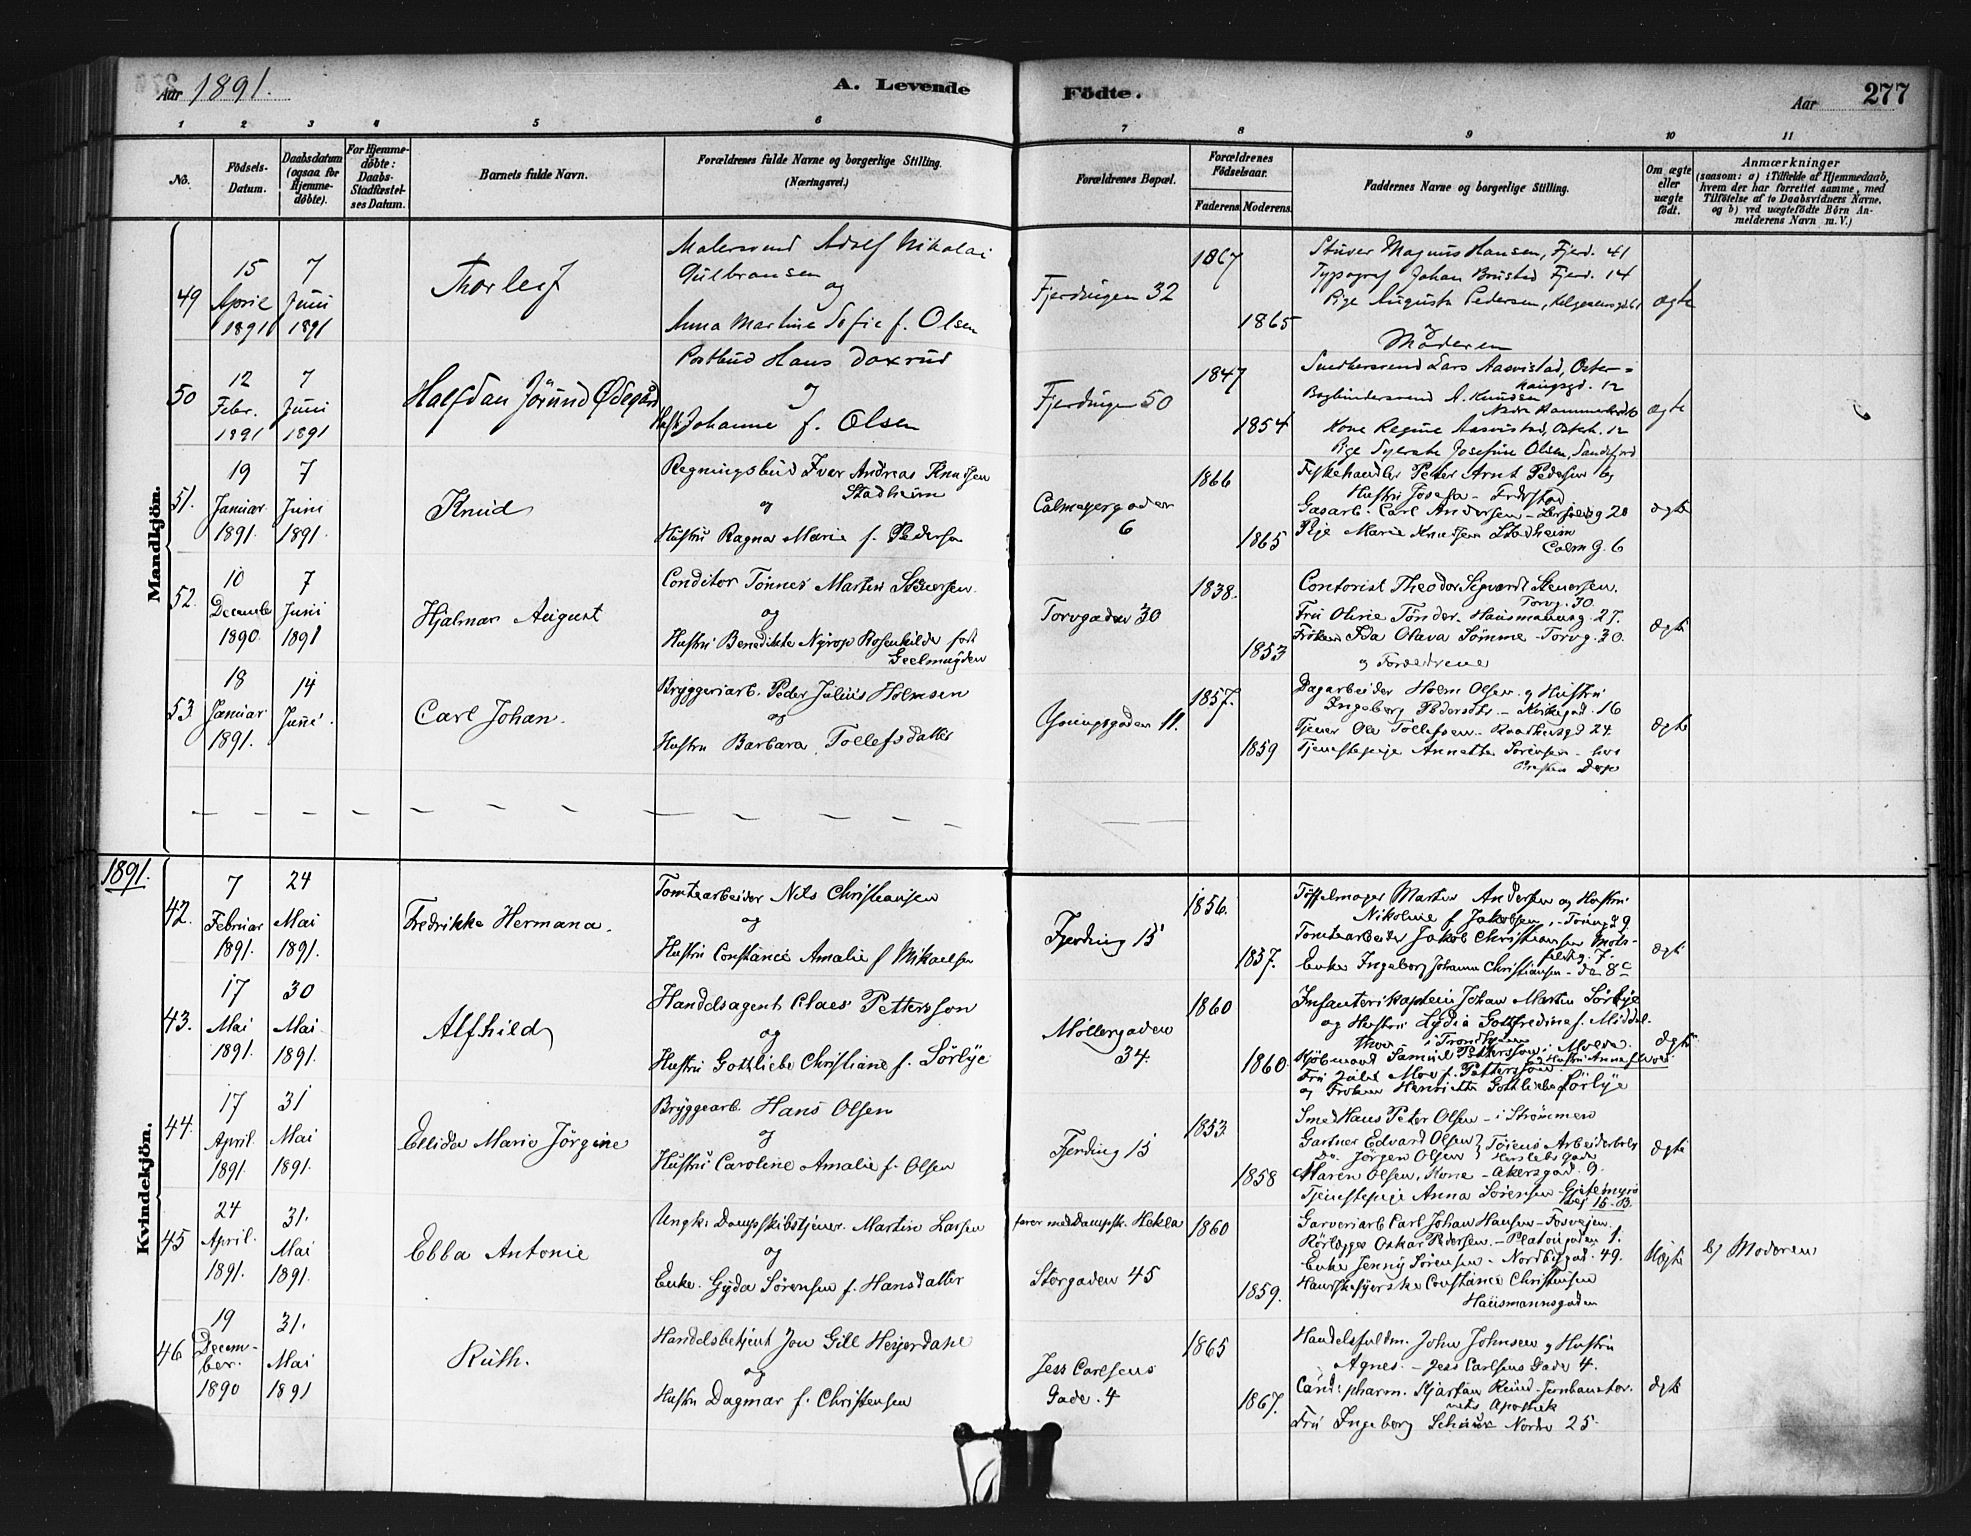 Aar 1891.
A. Levende
Födte.
Aar
277
1 2 3 4 5 6 7 8 9 10 11
No.
Födsels-
Datum.
Daabsdatum
(ogsaa for
Hjemme-
döbte).
For Hjemme-
döbte:
Daabs-
Stadfæstel-
ses Datum.
Barnets fulde Navn.
Forældrenes fulde Navne og borgerlige Stilling.
(Næringsvei.)
Forældrenes Bopæl.
Forældrenes
Födselsaar.
Faderens. Moderens.
Faddernes Navne og borgerlige Stilling.
Om ægte
eller
uægte
födt.
Anmærkninger
(saasom: a) i Tilfælde af Hjemmedaab,
hvem der har forrettet samme, med
Tilföielse af to Daabsvidners Navne.
og b) ved uægtefödte Börn An-
melderens Navn m. V.)
Mandkjön.
49
15
April
1891
7
Juni
1891
Thorleif
Malersvend Adolf Nikolai
Gulbransen
og
Anna Martine Sofie f. Olsen
Fjerdingen 32
1867
1865
Stuver Magnus Hansen, Fjerd. 41
Typograf Johan Brustad Fjerd. 14
Pige Augusta Pedersen,
og
Moderen
ægte
50
12
Febr.
1891
7
Juni
1891
Halfdan Jörund Ødegård
Postbud Hans Daxrud
og
Johanne f. Olsen
Fjerdingen 50
1847
1854
Snedkersvend Lars Aasvistad, Oster-
haugsgd. 12
Bogbindersvend A. Knudsen
Kone Regine Aasvistad, Osterh. 12
Pige Josefine Olsen, Sandefjord
ægte
51.
19
Januar
1891.
7
Juni
1891.
Knud
Regningsbud Iver Andreas Knudsen
Stadheim
og
Hustru Ragna Marie f. Pedersen
Calmeyergaden
6
1866
1865
Fiskehandler Peter Arnt Pedersen og
Hustru Josefa - Fredrstad
Gasarb. Carl Andersen - 20
Pige Marie Knudsen Stadheim
Calm G. 6
ægte
52.
10
December
1890.
7
Juni
1891
Hjalmar August
Conditor Tønnes Martin Stenersen
og
Hustru Benedikte Nyrop Rosenkilde født
Geelmuyden
Torvgaden 30
1838.
1853
Contorist Theodor Sigvardt Stenersen.
Torvg. 30.
Fru Oline Tønder. Hausmannsg. 27.
Frøken Ida Olava Sømme - Torvg. 30.
og Forældrene
ægte
53
18
Januar
1891.
14
Juni.
Carl Johan.
Bryggeriarb. Peder Julius Holmsen
og
Hustru Barbara Tollefsdatter
11.
1857.
1859
Dagarbeider Holm Olsen og Hustru
Ingeborg Pedersdtr. - 16
Tjener Ole Tollefsen - Raadhusgd 24
Tjenestepige Annette Sörensen - hos
ægte
1891.
Kvindekjön.
42.
7
Februar
1891.
24
Mai
1891.
Fredrikke Hermana.
Tomtearbeider Nils Christiansen
og
Hustru Constance Amalie f Mikaelsen
Fjerding 15
1856.
1857.
Töffelmager Martin Andersen og Hustru
Nikoline f. Jakobsen,
Tomtearbeider Jakob Christiansen
Enke Ingeborg Johanne Christiansen - do 8c
ægte
43.
17
Mai
1891.
30
Mai
1891.
Alfhild
Handelsagent Claes Pettersson
og
Hustru Gottliebe Christiane f. Sörbye
Möllergaden
34.
1860
1860
Infanterikaptein Johan Martin Sörbye
og Hustru Lydia Gottfredine f. Middel-
thon i Trondhjem
Kjöbmand Samuel Pettersson i Molde. og Hustru Anna f. Woll
Fru Moe f. Pettersson
og Fröken Henriette Gottliebe Sörbye
ægte
44.
17
April
1891
31
Mai
1891.
Ellida Marie Jörgine
Bryggearb. Hans Olsen
og
Hustru Caroline Amalie f. Olsen
Fjerding 15
1853.
1858
Smed Hans Peter Olsen - i Strömmen
Gartner Edvard Olsen } Töiens Arbeiderbolig
Do. Jörgen Olsen } Herslebs gade
Maren Olsen, Kone - Akersgad. 9.
Tjenestepige Anna Sörensen - Gjetemyrs
vej 15-B.
ægte
45
24
April.
1891.
31.
Mai
1891.
Ebba Antonie
Ungk. Dampskibstjener. Martin Larsen
og
Enke. Gyda Sörensen f. Hansdatter
farer med Dampsk. Hekla
Storgaden 45
1860
1859.
Garveriarb Carl Johan Hansen - Fosvejen.
Rörlægger Oskar Pedersen. - Platousgaden 1.
Enke Jenny Sörensen - Nordbygad. 49.
Handskesyerske Constance Christensen
Hausmannsgaden
Uægte
b) Moderen
46
19
Decem-
ber.
1890
31.
Mai
1891
Ruth.
Handelsbetjent Jon Gill Heyerdahl
og
Hustru Dagmar f. Christensen
Jess Carlsens
Gade. 4
1865
1867.
Handelsfuldm. John Johnsen og Hustru
Agnes. - Jess Carlsens Gade 4.
Cand: pharm. Kjartan Reund. Jernbanetor-
vets Apothek
Fru Ingeborg Nordre 25.
ægte